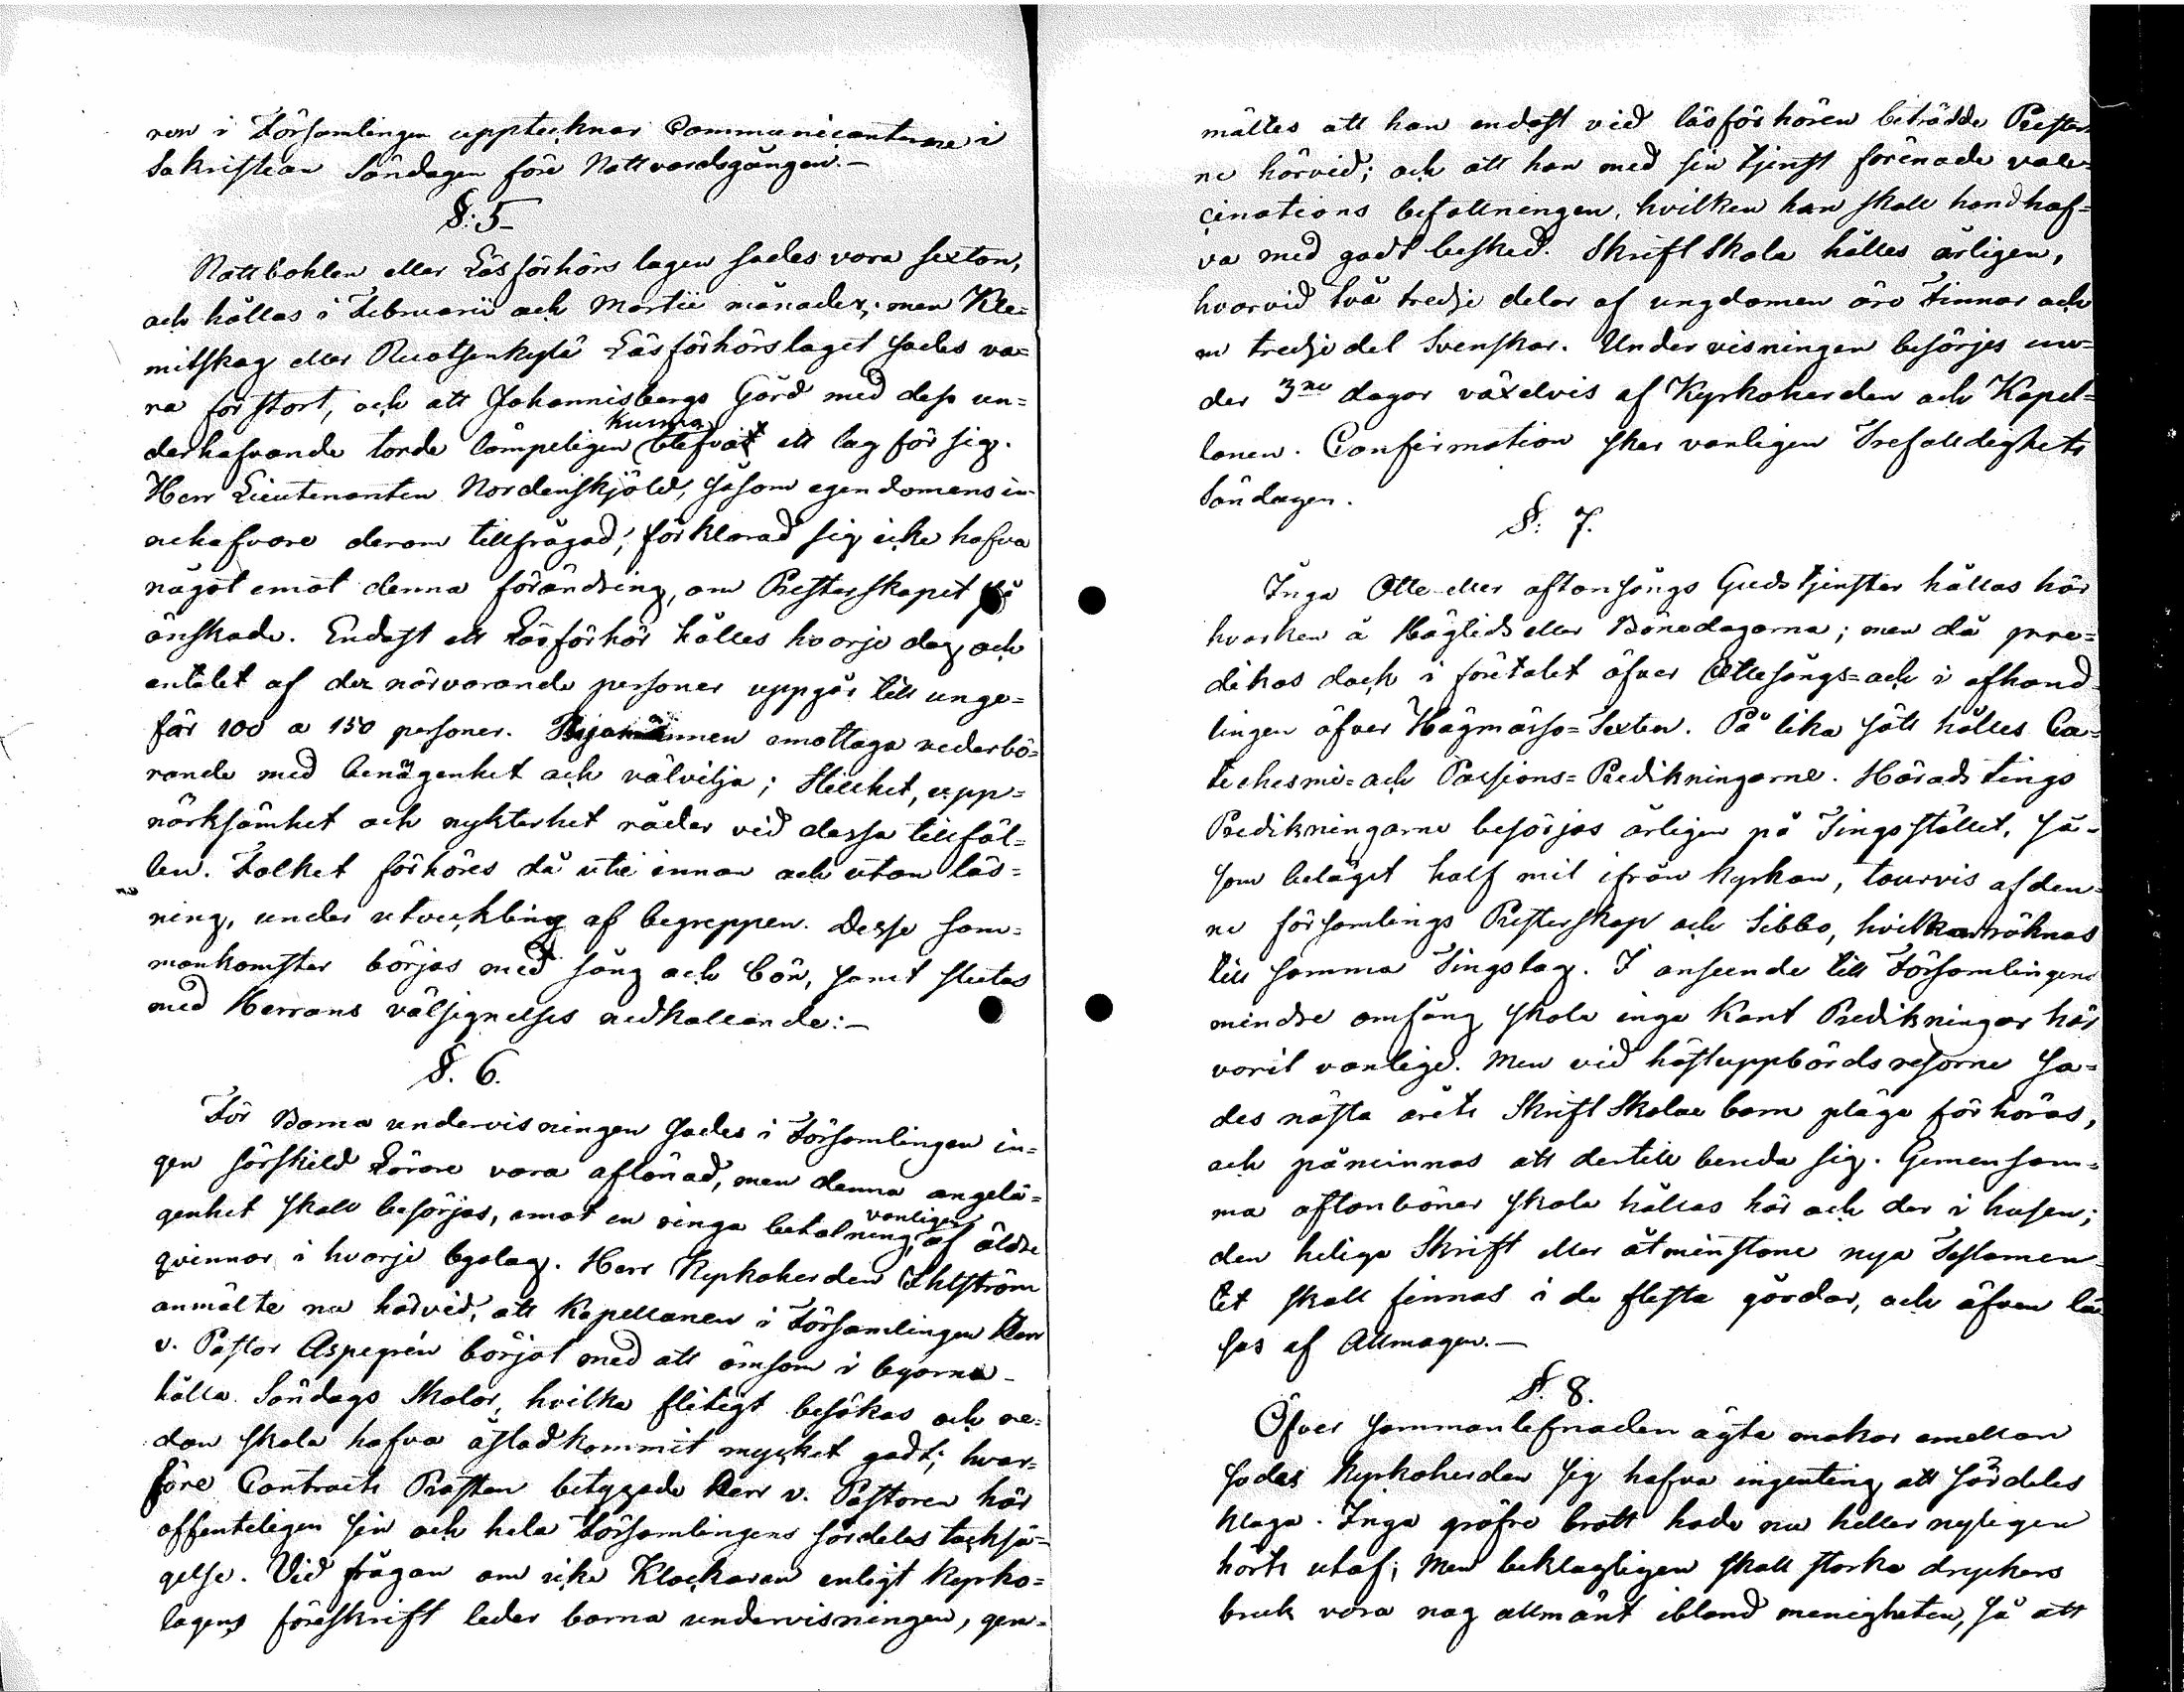 ren i Församlingen upptecknar Communicanterne i
Sakristian Söndagen före Nattvardsgången.—
§: 5
Nattbohlen eller Läsförhörs lagen sades vara sexton,
och hållas i Februarii och Martii månader; men Kle=
mitskog eller Ruotsinkylä Läsförhörslaget sades va=
ra för stort, och att Johannisbergs Gård med dess un=
Kunna
derhafvande torde lämpeligen blefvat ett lag för sig.
Herr Lieutenanten Nordenskjöld, såsom egendomens in=
nehafvare derom tillfrågad, förklarad sig icke hafva
något emot denna förändring, om Presterskapet så
önskade. Endast ett Läsförhör hålles hvarje dag, och
antalet af der närvarande personer uppgår till unge=
fär 100 a 150 personer. Byamännen emottaga vederbö=
rande med benägenhet och välvilja; Stillhet, upp=
märksamhet och nykterhet råder vid dessa tillfäl=
len. Folket förhöres då uti innan och utan läs=
ning, under utveckling af begreppen. Desse sam=
mankomster börjas med sång och bön, samt slutas
med Herrans välsignelses nedkallande:—
§. 6.
För Barna undervisningen sades i Församlingen in=
gen särskild Lärare vara aflönad, men denna angelä=
vanligen
genhet skall besörjas, emot en ringa betalning, af äldre
qvinnor i hvarje byalag. Herr Kyrkoherden Ihlström
anmälte nu härvid, att Kapellanen i Församlingen Herr
v. Pastor Aspegrén börjat med att ömsom i byarna
hålla Söndags Skolor, hvilka flitigt besökas och re=
dan skola hafva åstadkommit mycket godt; hvar=
före Contracts Prosten betygade Herr v. Pastoren här
offenteligen sin och hela Församlingens särdeles tacksä=
gelse. Vid frågan om icke Klockaren enligt Kyrko=
lagens föreskrift leder barna undervisningen, gen=
mältes att han endast vid läsförhören biträdde Prester
ne härvid; och att han med sin tjenst förenade vac=
cinations befattningen, hvilken han skall handhaf=
va med godt besked. Skriftskola hålles årligen,
hvarvid två tredje delar af ungdomen äro Finnar och
en tredjedel Svenskar. Undervisningen besörjes un=
der 3ne dagar växelvis af Kyrkoherden och Kapel=
lanen. Confirmation sker vanligen Trefaldighets
Söndagen.
§: 7.
Inga Otte eller aftonsångs Gudstjenster hållas här
hvarken å Högtids eller Bönedagarna; men då pre=
dikas dock i företalet öfver Ottesångs= och i afhand=
lingen öfver Högmässo=Texten. På lika sätt hålles Ca=
techesmi= och Passions=Predikningarne. Härads tings
Predikningarne besörjas årligen på Tingsstället, så=
som beläget half mil ifrån Kyrkan, tourvis af den=
ne församlings Presterskap och Sibbo, hvilka räknas
till samma Tingslag. I anseende till Församlingens
mindre omfång skola inga Kant Predikningar här
varit vanlige. Men vid höstuppbördsresorne sa=
des nästa årets Skrift Skolae barn pläga förhöras,
och påminnas att dertill bereda sig. Gemensam=
ma aftonböner skola hållas här och der i husen;
den heliga Skrift eller åtminstone nya Testamen=
tet skall finnas i de flesta gårdar, och äfven lä
sas af Allmogen.—
§. 8.
Öfver sammanlefnaden ägta makar emellan
sades Kyrkoherden sig hafva ingenting att särdeles
klaga. Inga gröfre brott hade nu heller nyligen
hörts utaf; Men beklagligen skall starka dryckers
bruk vara nog allmänt ibland menigheten, så att